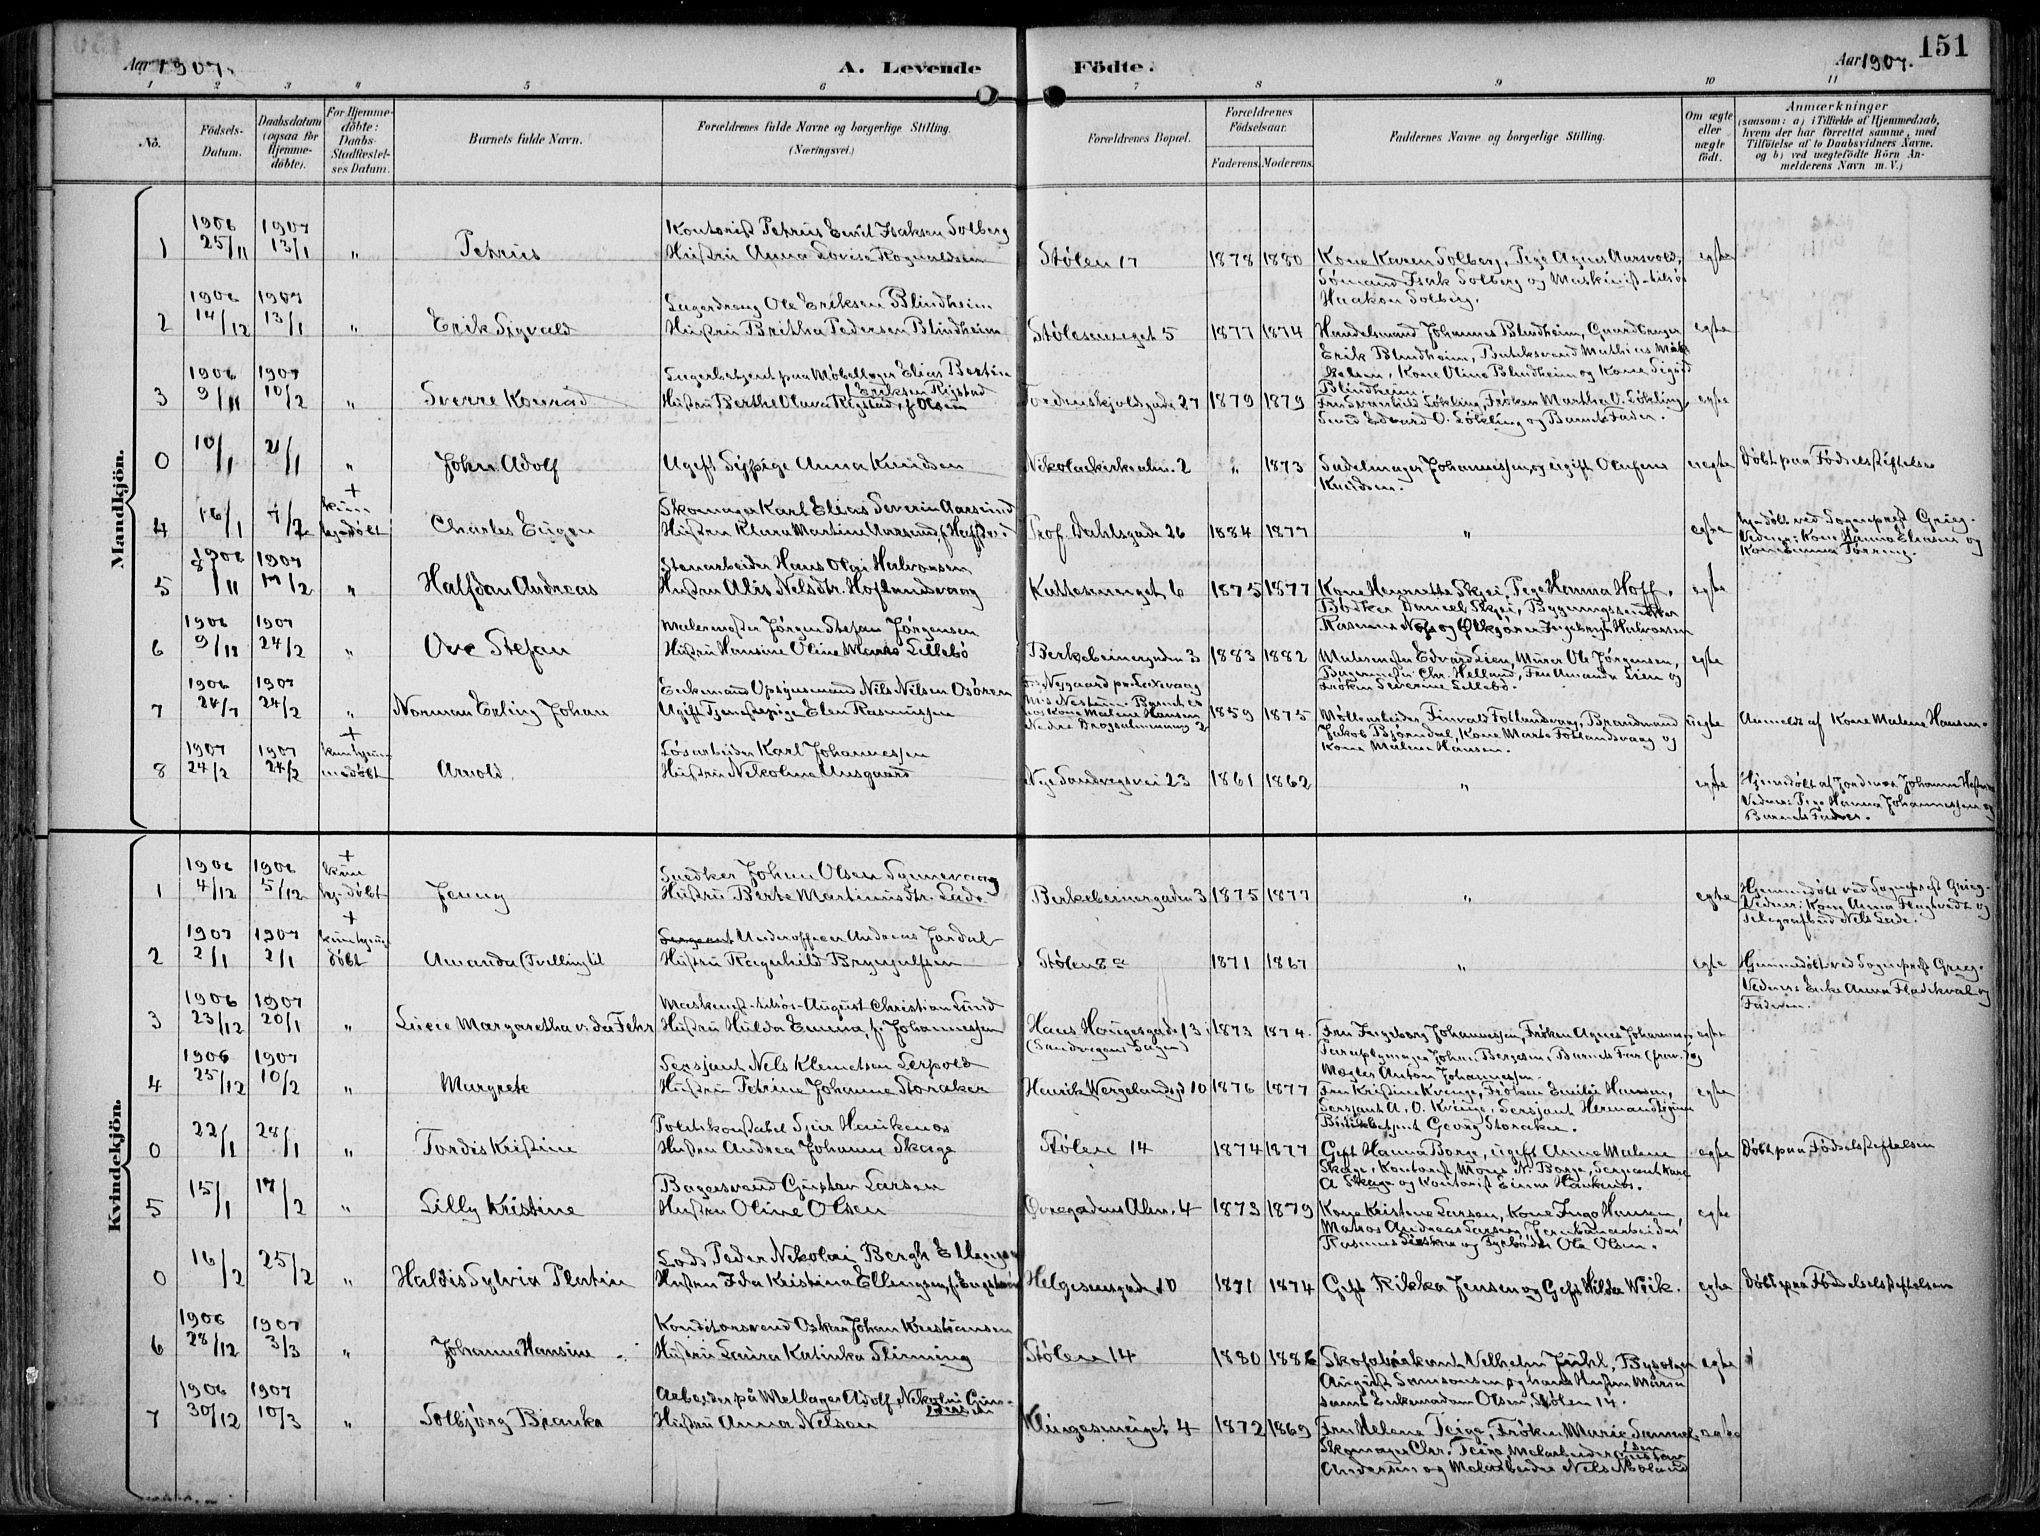 Aar 1907.
A. Levende
Födte.
Aar 1907.
151
1 2 3 4 5 6 7 8 9 10 11
No.
Födsels-Datum.
Daabsdatum (ogsaa for Hjemme-döbte).
For Hjemme-döbte: Daabs-Stadfæstel-ses Datum.
Barnets fulde Navn.
Forældrenes fulde Navne og borgerlige Stilling.
(Næringsvei.)
Forældrenes Bopæl.
Forældrenes Födselsaar.
Faderens. Moderens.
Faddernes Navne og borgerlige Stilling.
Om ægte eller uægte födt.
Anmærkninger
(saasom: a) i Tilfælde af Hjemmedaab,
hvem der har forrettet samme, med
Tilföielse af to Daabsvidners Navne.
og b) ved uægtefödte Börn An-
melderens Navn m. V.)
Mandkjön.
1 1906 25/11 1907 13/1 " Petrus
Kontorist Petrus Emil Isaksen Solberg
Hustru Anna Lovise Rognaldsen
Stølen 17 1878 1880
Kone Karen Solberg, Pige Agnes Aarsvold,
Sømand Isak Solberg og Maskinist
Haakon Solberg.
egte
2 1906 14/12 1907 13/1 " Erik Sigvald
Lagerdreng Ole Eriksen Blindheim
Hustru Britha Pedersen Blindheim
Stølesmuget 5 1877 1874
Handelsmand Johannes Blindheim, Gaardbruger
Erik Blindheim, Butiksvend Mathias
Kone Oline Blindheim og Kone Sigrid
Blindheim
egte
3 1906 9/11 1907 10/2 " Sverre Konrad
Lagerbetjent paa Møbellager Elias Bertin
Eriksen Rigstad
Hustru Berthe Olava Rigstad, f. Olsen
Tordenskjoldsgade 27 1879 1879
Fru Svanhild Løkling, Frøken Martha O. Løkling,
Svend Edvard O. Løkling og Barnets Fader.
egte
0 10/1 21/1 " John Adolf
Ugift Sypige Anna Knudsen
Nikolaikirkealm. 2 " 1873
Sadelmager Johannessen og ugift Olufine
Knudsen.
uegte
Døbt paa Fødselsstiftelsen
4 16/1 7/2 + kun hj-døbt Charles Eugen
Skomager Karl Elias Severin Aarsund
Hustru Klara Martine Aarsund, f.
Prof. Dahlsgade 26 1884 1877 " egte
hj-døbt ved Sogneprest Grieg.
Vidner: Kone Hanna Eliasen og
Kone Emma Tørring.
5 1906 8/11 1907 17/2 " Halfdan Andreas
Stenarbeider Hans Olai Halvorsen
Hustru Alis Nelsdtr. Hoflandsvaag
Kuttesmuget 6 1875 1877
Kone Henriette Skjei, Pige Hanna Hoff,
Bødker Daniel Skjei, Bygningssnedker
Rasmus og Ingebrigt Halvorsen
egte
6 1906 9/12 1907 24/2 " Ove Stefan
Malermester Jørgen Stefan Jørgensen
Hustru Hansine Oline Marie Lillebø
Berkebeinergaden 3 1883 1882
Malermester Edvard Lien, Murer Ole Jørgensen,
Bagermester Chr. Helland, Fru Amanda Lien og
Frøken Severine Lillebø.
egte
7 1906 24/7 1907 24/2 " Norman Erling Johan
Enkemand Opsynsmand Nils Nilsen Osøren
Ugift Tjenestepige Elen Rasmussen
Nygaard pr. Laxevaag
hos Kone Malene Hansen
Nedre Dragsalmuning 2
1859 1875
Møllearbeider Finvald Fotlandsvaag, Brandmand
Jakob Bjørndal, Kone Marte Fotlandsvaag og
Kone Malene Hansen.
uegte
Anmeldt af Kone Malene Hansen.
8 1907 24/2 1907 24/2 + kun hjem-medøbt Arnold
Løsarbeider Karl Johannessen
Hustru Nikoline Ansgaard
Nye Sandvigsvei 23 1861 1862 " egte
Hjemdøbt af Jordmor Johanne
Vidner: Pige Hanna Johannessen og
Barnets Fader.
Kvindekjön.
1 1906 4/12 1906 5/12 + kun hj-døbt Jenny
Snedker Johan Olsen Synnevaag
Hustru Berte Martinusdtr. Lade
Berkebeinergaden 3 1875 1877 " egte
Hjemmedøbt ved Sogneprest Grieg.
Vidner: Kone Anna Flagtvedt og
Telegrafbud Nils Lade.
2 1907 2/1 1907 2/1 + kun hjem-døbt Amanda (Tvilling til
Sergeant Underofficer Andreas Jordal
Hustru Ragnhild Brynjulfsen
Stølen 8a 1871 1867 " egte
Hjemmedøbt ved Sogneprest Grieg.
Vidner: Enke Anna Fladekval og
Faderen.
3 1906 23/12 1907 20/1 " Lucie Margaretha v. der Fehr
Maskinist August Christian Lind
Hustru Hulda Emma, f. Johannessen
Hans Haugesgade 13
(Sandvigens Sogn)
1873 1874.
Fru Ingeborg Johannessen, Frøken Agnes Johannessen,
Paraplymager Johan Bergesen, Barnets Far (frav.) og
Mægler Anton Johannessen.
egte
4 1906 25/12 1907 10/2 " Margrete
Sersjant Nels Klemetsen Serpold
Hustru Petrine Johanne Storaker
Henrik Wergelandsgd 10 1876 1877
Fru Kristine Kvinge, Frøken Emilie Hansen,
Sersjant A. O. Kvinge, Sersjant Herman
Butikbetjent Georg Storaker.
egte
0 22/1 28/1 " Tordis Kristine
Politikonstabel Geir Haukenæs
Hustru Andrea Johanne Skage
Stølen 14 1874 1877
Gift Hanna Borge, ugift Anne Malene
Skage, Kontorist Mons N. Borge, Sergeant Karl
A Skage og Kontorist Einar Haukenæs.
egte
Døbt paa Fødselsstiftelsen
5 15/1 17/2 " Lilly Kristine
Bagersvend Gustav Larsen
Hustru Oline Olsen
Øvregadens Alm. 4 1873 1879
Kone Kristene Larsen, Kone Inga Hansen,
Matros Andreas Larsen, Jernbanearbeider
Rasmus og Fyrbøder Ole Olsen.
egte
0 16/2 25/2 " Haldis Sylvia Platin
Lods Peder Nikolai Bergh Ellingsen
Hustru Ida Kristina Ellingsen, f. Engstrøm
Helgesensgade 10 1871 1874
Gift Rikka Jensen og Gift Hilda Wiik.
egte
Døbt paa Fødselsstiftelsen
6 1906 28/12 1907 3/3 " Johanne Hansine
Konditorsvend Oskar Johan Kristiansen
Hustru Laura Katinka Slinning
Stølen 14 1880 1886
Skofabrikant Vilhelm Juhl, Bysøgn
August Samsonsen og hans Hustru Maria
samt Enkemadam Olsen, Stølen 14.
egte
7 1906 30/12 1907 10/3 " Solbjørg Bianka
Arbeider på Mellager Adolf Nikolai Gun-
dersen
Hustru Anna Nelsen
Klingesmuget 4 1872 1869
Fru Helene Teige, Frøken Marie Samuel-
sen
Skomager Chr. Teige, Melarbeider Gustav
Andersen og Melarbeider Nels Møland
egte